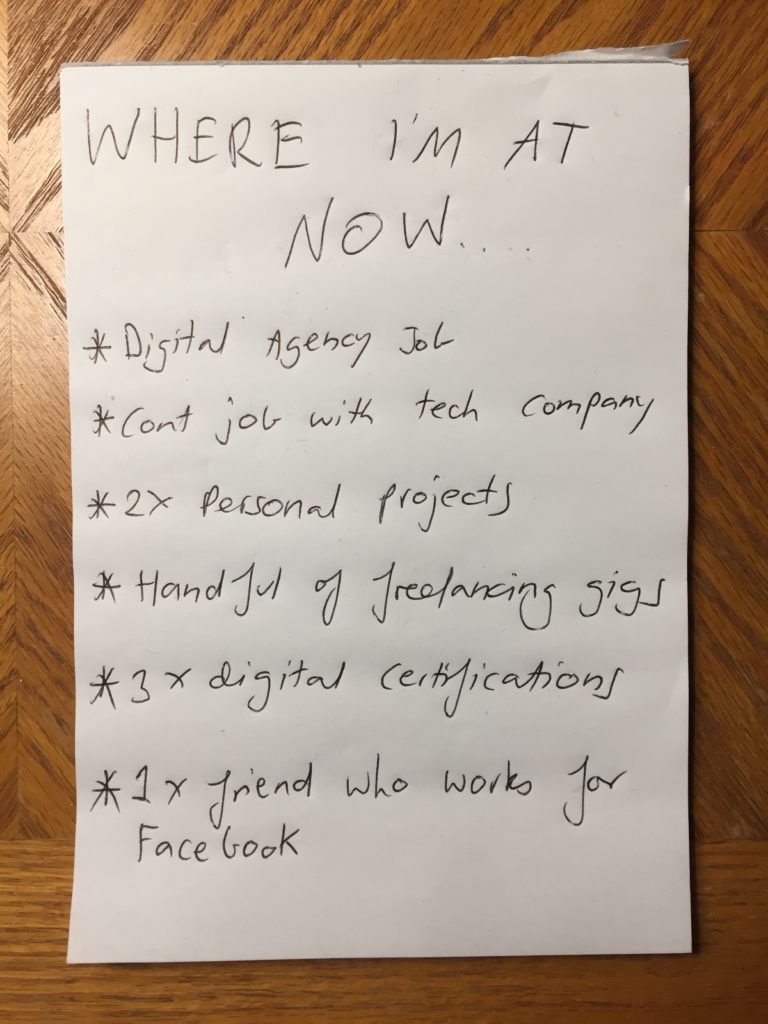 WHERE I'M AT
NOW.....
* Digital Agency Job
* Cont job with tech company
* 2x Personal projects
* Handful of freelancing gigs
* 3x digital certifications
* 1x friend who works for
Facebook